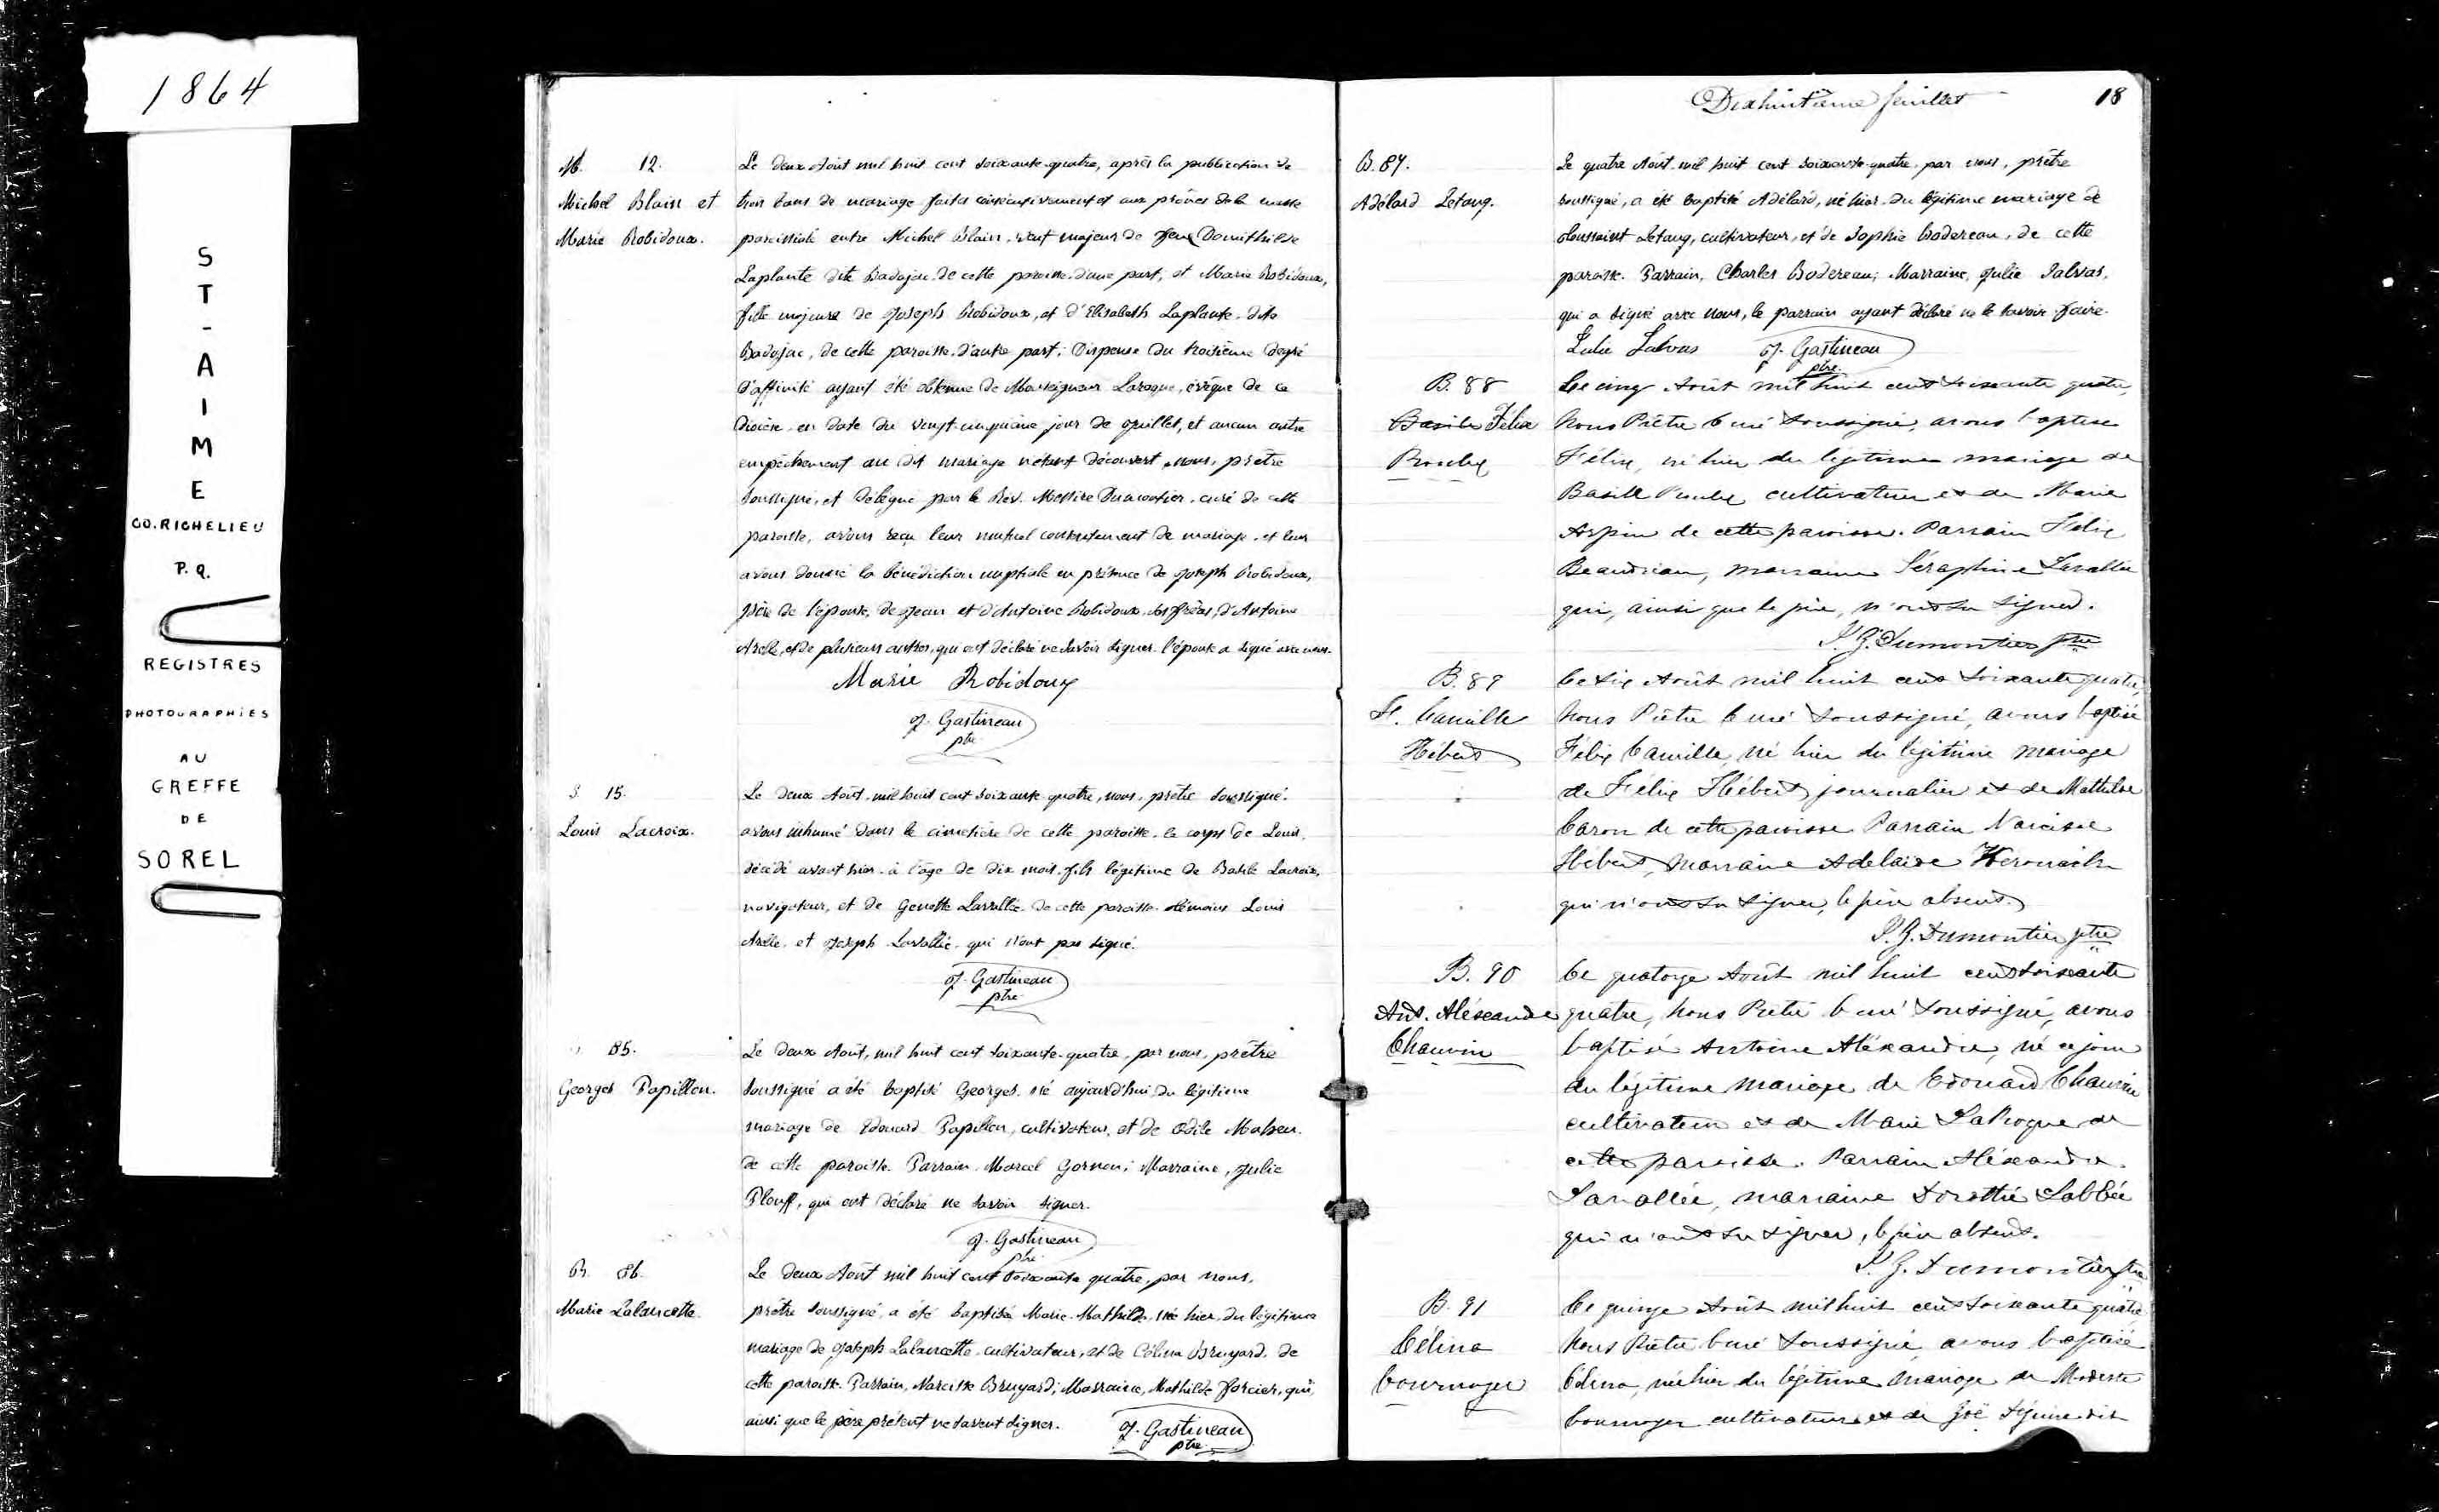 1864
ST-AIME
CO.RICHELIEU
P.Q.
REGISTRES
PHOTOGRAPHIES
AU
GREFFE
DE
SOREL
M. 12.
Michel Blain et
Marie Robidoux.
Le deux Août mil huit cent soixante-quatre, après la publication de
trois bans de mariage faite consécutivement et aux prônes de la messe
paroissiale entre Michel Blain, veuf majeur de feue Domithilde
Laplante dite Badajac de cette paroisse d'une part, et Marie Robidoux,
fille majeure de Joseph Robidoux, et d'Elisabeth Laplante dite
Badajac, de cette paroisse d'autre part; Dispense du troisième degré
d'affinité ayant été obtenue de Monseigneur Laroque, évêque de ce
diocèse en date du vingt-cinquième jour de Juillet, et aucun autre
empêchement au dit mariage n'étant découvert, nous, prêtre
soussigné, et délégué par le Rév. Messire Dumontier, curé de cette
paroisse, avons reçu leur mutuel consentement de mariage, et leur
avons donné la bénédiction nuptiale en présence de Joseph Robidoux,
père de l'épouse, de Jean et d'Antoine Robidoux, ses frères, d'Antoine
Arelle, et de plusieurs autres, qui ont déclaré ne savoir signer. l'épouse a signé avec nous.
Marie Robidoux
J. Gastineau
ptre
S 15.
Louis Lacroix.
Le deux Août, mil huit cent soixante-quatre, nous, prêtre soussigné,
avons inhumé dans le cimetière de cette paroisse, le corps de Louis,
décédé avant hier, à l'âge de dix mois, fils légitime de Basile Lacroix,
navigateur, et de Genette Lavallée de cette paroisse. Témoins Louis
Arelle, et Joseph Lavallée, qui n'ont pas signé.
J. Gastineau
ptre
85.
Georges Papillon.
Le deux Août, mil huit cent soixante-quatre, par nous, prêtre
soussigné a été baptisé Georges, né aujourd'hui du légitime
mariage de Edouard Papillon, cultivateur, et de Odile
de cette paroisse. Parrain, Marcel; Marraine, Julie
Plouff, qui ont déclaré ne savoir signer.
J. Gastineau
ptre
B. 86.
Marie Lalancette.
Le deux Août mil huit cent soixante quatre, par nous,
prêtre soussigné, a été baptisée Marie-Mathilde, née hier, du légitime
mariage de Joseph Lalancette, cultivateur, et de Célina Bruyard, de
cette paroisse. Parrain, Narcisse Bruyard; Marraine, Mathilde Forcier, qui,
ainsi que le père présent ne savent signer.
J. Gastineau
ptre
Dixhuitième feuillet 18
B. 87.
Adélard Letang.
Le quatre Août mil huit cent soixante-quatre, par nous, prêtre
soussigné, a été baptisé Adélard, né hier du légitime mariage de
Toussaint Letang, cultivateur, et de Sophie Bodereau, de cette
paroisse. Parrain, Charles Bodereau; Marraine, Julie Salvas,
qui a signé avec nous, le parrain ayant déclaré ne le savoir faire.
Julie Salvas J. Gastineau
ptre
B. 88
Basile Félix
Le cinq Août mil huit cent soixante quatre,
Nous Prêtre Curé soussigné, avons baptisé
Félix, né hier du légitime mariage de
Basile cultivateur et de Marie
de cette paroisse. Parrain Félix
Beaudreau, marraine Séraphine Lavallée
qui, ainsi que le père, n'ont su signer.
J. G. Dumontier ptre
B. 89
F. Camille
Hébert
Le six Août mil huit cent soixante quatre,
Nous Prêtre Curé soussigné, avons baptisé
Félix Camille, né hier du légitime mariage
de Félix Hébert journalier et de Mathilde
Caron de cette paroisse Parrain Narcisse
Hébert, marraine Adelaide
qui n'ont su signer, le père absent.
J. G. Dumontier ptre
B. 90
Ant. Aléxandre
Chauvin
Le quatorze Août mil huit cent soixante
quatre, Nous Prêtre Curé soussigné, avons
baptisé Antoine Aléxandre, né ce jour
du légitime mariage de Edouard Chauvin
cultivateur et de Marie LaRoque de
cette paroisse. Parrain Aléxandre
Lavallée, marraine Dorothée Labbée
qui n'ont su signer, le père absent.
J. G. Dumontier ptre
B. 91
Célina
Cournoyer
Le quinze Août mil huit cent soixante quatre,
Nous Prêtre Curé soussigné avons baptisé
Célina, née hier du légitime mariage de Modeste
Cournoyer cultivateur et de Zoé dit